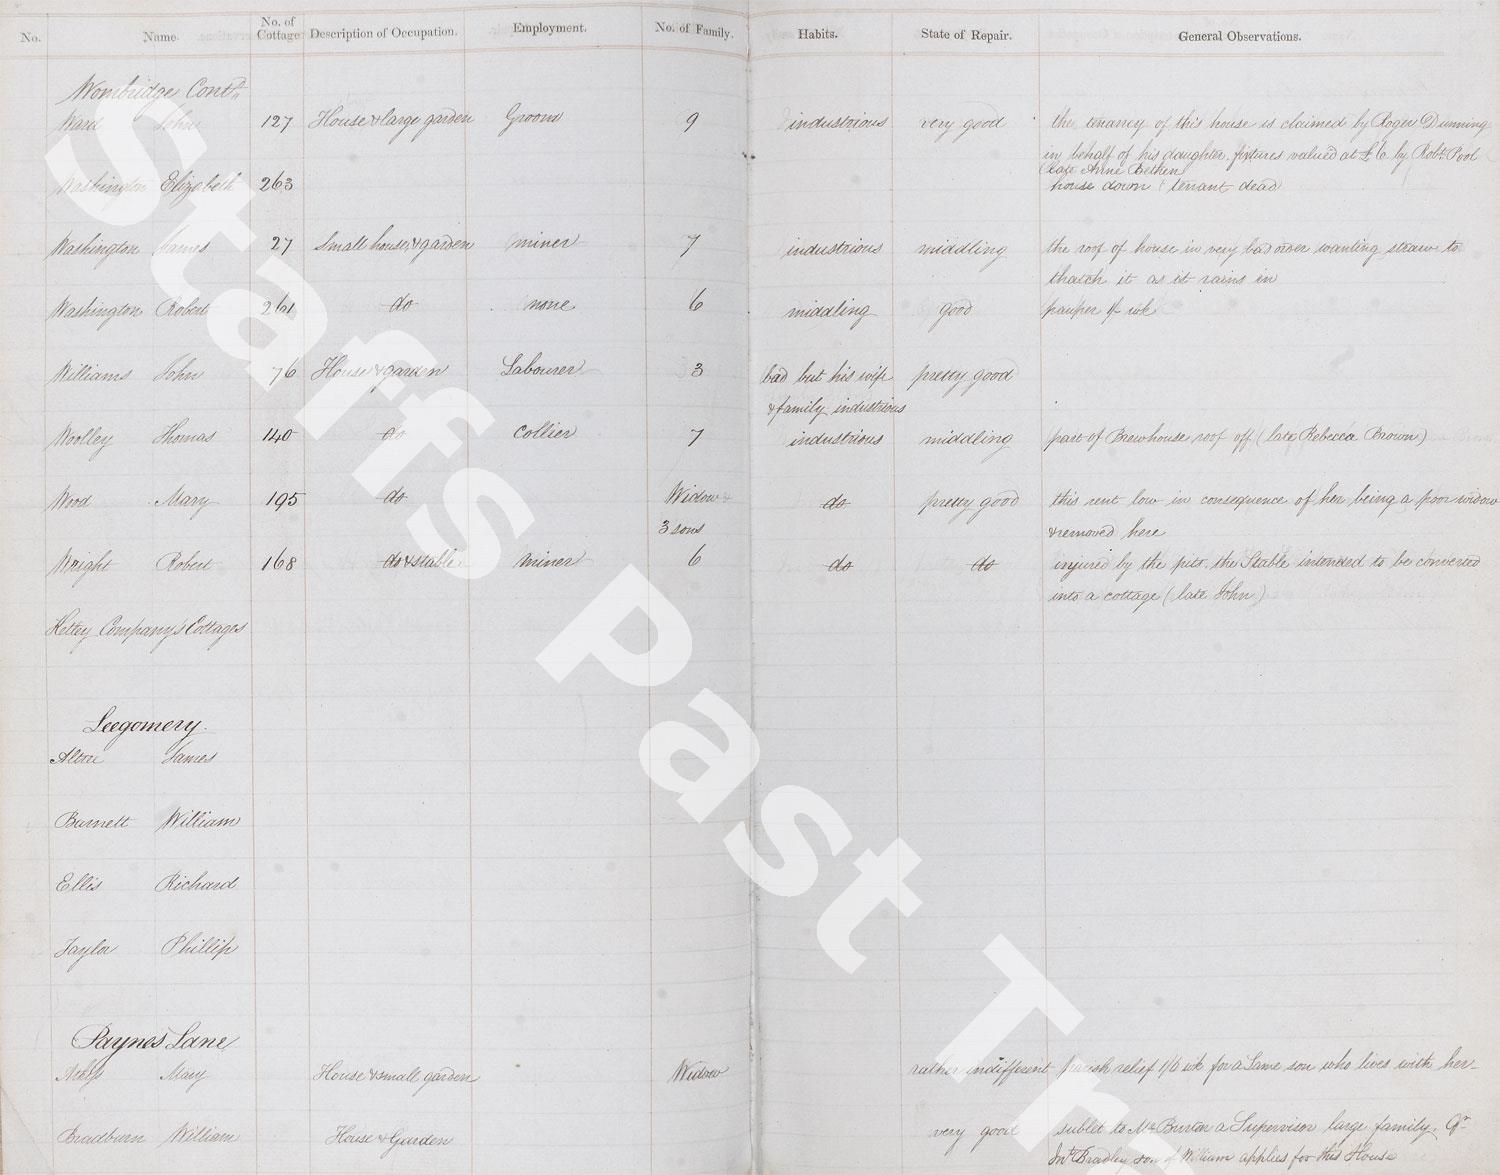 No. Name. No. of Cottage Description of Occupation. Employment. No. of Family. Habits. State of Repair. General Observations.
Wombridge Contd.
Ward John 127 House & large garden Groom 9 industrious very good the tenancy of this house is claimed by Roger Dunning
in behalf of his daughter. fixtures valued at £6 by Robt. Pool
(late Anne Bethen)
Washington Elizabeth 263 house down tenant dead
Washington James 27 Small house & garden miner 7 industrious middling the roof of house in very bad order wanting straw to
thatch it as it rains in
Washington Robert 261 do none 6 middling good pauper wk
Williams John 76 House & garden Labourer 3 bad but his wife pretty good
& family industrious
Woolley Thomas 140 do Collier 7 industrious middling part of Brewhouse roof off (late Rebecca Brown)
Wood Mary 195 do Widow & do pretty good this rent low in consequence of her being a poor widow
3 sons & removed here
Wright Robert 168 do & stable miner 6 do do injured by the pits. the Stable intended to be converted
into a cottage (late John)
Ketley Company's Cottages
Leegomery.
James
Barnett William
Ellis Richard
Taylor Phillip
Paynes Lane
Mary House & small garden Widow rather indifferent parish relief 1/6 wk for a Lame son who lives with her
Bradburn William House & Garden very good sublet to Mr Burton a Supervisor large family. Qr.
Jno. Bradley son of William applies for this House
Staffs Past Tr